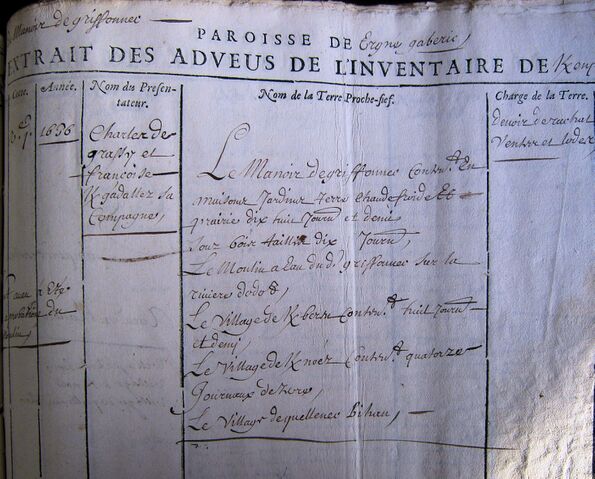 Manoir de griffonnec
PAROISSE DE Ergue gaberic,
EXTRAIT DES ADVEUS DE L'INVENTAIRE DE
Cotte.
Année.
Nom du Presen-
tateur.
Nom de la Terre Proche-fief.
Charge de la Terre.
1636
Charles de
grassy et
francoise
Kgadallez sa
Compagne,
Le Manoir de griffonnec Conten.t En
maisons Jardins terre chaude froide Et
prairie dix huit Journ. et demi
Sous bois taillif dix Journ.
Le Moulin a Eau dud. griffonnec sur la
riviere dodet,
Le Village de Kbern Conten.t huit Journ.
et demj
Le Village de Knoës Conten.t quatorze
Journeaux de terre,
Le Village de quellenec bihan,
Devoir de rachat
Ventes et lodes,